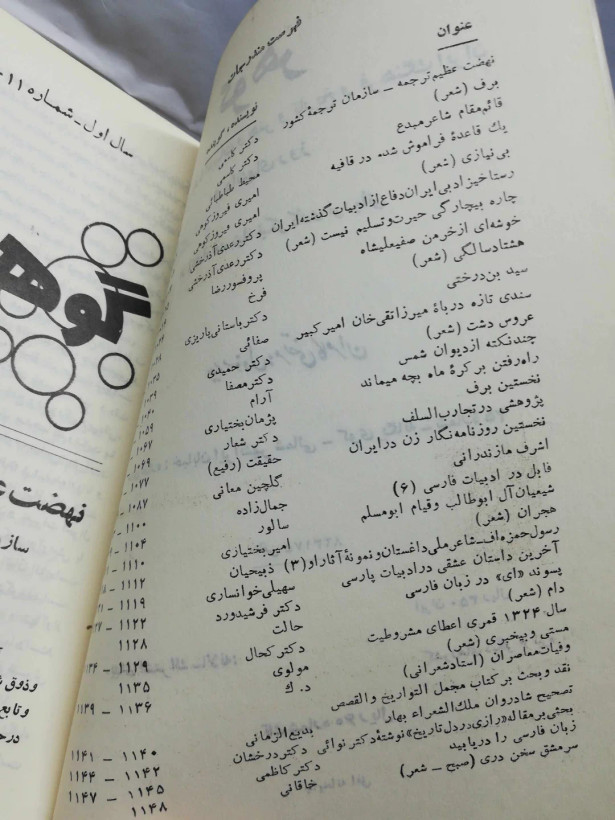 فهرست مندرجات
عنوان
نویسنده،
نهضت عظیم ترجمه ــ سازمان ترجمهٔ کشور
برف (شعر)
قائم‌مقام شاعر مبدع
یك قاعدهٔ فراموش شده در قافیه
بی‌نیازی (شعر)
رستاخیز ادبی ایران دفاع از ادبیات گذشته ایران
چاره بیچارگی حیرت و تسلیم نیست (شعر)
خوشه‌ای از خرمن صفیعلیشاه
هشتاد سالگی (شعر)
سید بن‌درختی
سندی تازه دربارهٔ میرزا تقی خان امیر کبیر
عروس دشت (شعر)
چند نکته از دیوان شمس
راه رفتن بر کرهٔ ماه بچه میماند
نخستین برف
پژوهشی در تجارب السلف
نخستین روزنامه نگار زن در ایران
اشرف مازندرانی
قابل در ادبیات فارسی (۶)
شیعیان آل ابوطالب و قیام ابومسلم
هجران (شعر)
رسول حمزه‌اف ــ شاعر ملی داغستان و نمونهٔ آثار او (۳)
آخرین داستان عشقی در ادبیات پارسی
پسوند «ای» در زبان فارسی
دام (شعر)
سال ۱۳۲۴ قمری اعطای مشروطیت
مستی و بیخبری (شعر)
وفیات معاصران (استاد شعرانی)
نقد و بحث بر کتاب مجمل التواریخ والقصص
تصحیح شادروان ملك الشعراء بهار
بحثی بر مقاله «رازی در دل تاریخ» نوشتهٔ دکتر نوائی
زبان فارسی را دریابید
سرمشق سخن دری (صبح ــ شعر)
دکتر کاسمی
دکتر کاسمی
محیط طباطبائی
امیری فیروزکوهی
امیری فیروزکوهی
دکتر رعدی آذرخشی
دکتر رعدی آذرخشی
پروفسور رضا
فرخ
دکتر باستانی پاریزی
صفائی
دکتر حمیدی
دکتر مصفا
آرام
پژمان بختیاری
دکتر شعار
حقیقت (رفیع)
گلچین معانی
جمال‌زاده
سالور
امیر بختیاری
ذبیحیان
سهیلی خوانساری
دکتر فرشیدورد
حالت
دکتر کحال
مولوی
د. ك
بدیع الزمانی
دکتر درخشان
دکتر کاظمی
خاقانی
۱۰۵۹
۱۰۶۷
۱۰۶۹
۱۰۷۷
۱۰۸۷
۱۱۰۰
۱۱۰۴
۱۱۱۰
۱۱۱۲
۱۱۱۹
۱۱۲۲
۱۱۲۸
۱۱۲۹
۱۱۳۵
۱۱۳۶ – ۱۱۳۹
۱۱۴۰ – ۱۱۴۱
۱۱۴۲ – ۱۱۴۴
۱۱۴۵ – ۱۱۴۷
۱۱۴۸
سال اول ــ شماره ۱۱
گوه
نهضت ع
ساز
و ذوق
و تابع
درح